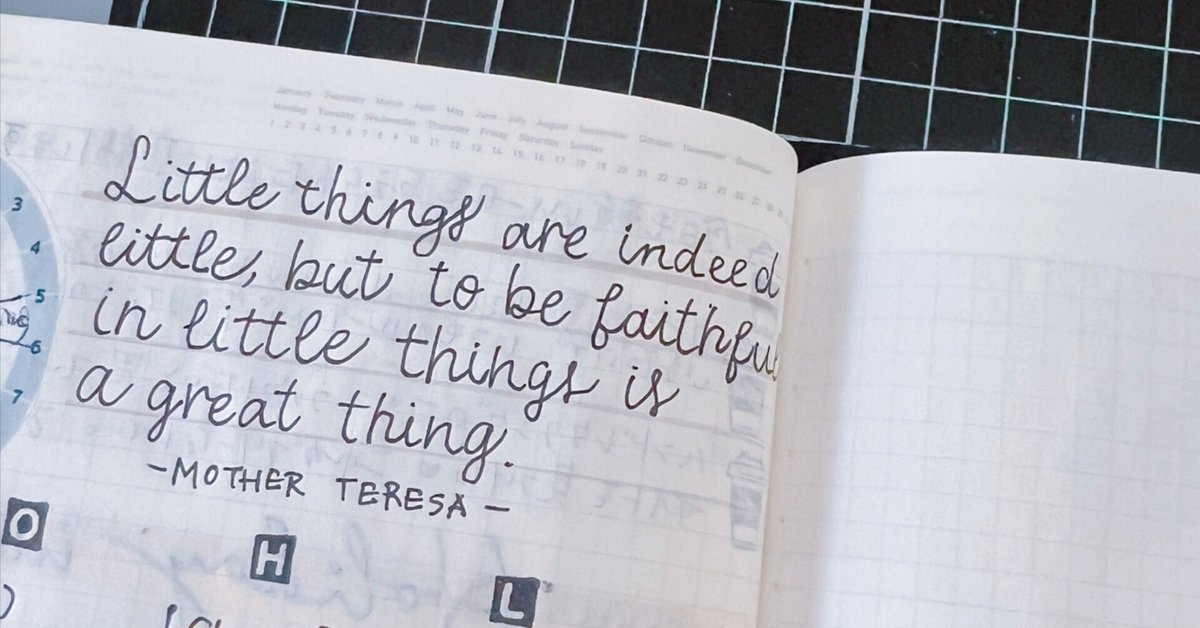 January February March April May June July August September October November December
Monday Tuesday Wednesday Thursday Friday Saturday Sunday
1 2 3 4 5 6 7 8 9 10 11 12 13 14 15 16 17 18 19 20 21 22 23 24 25 26 27 28
Little things are indeed
little, but to be faithful
in little things is
a great thing.
-MOTHER TERESA-
3
4
5
6
7
O
H
L